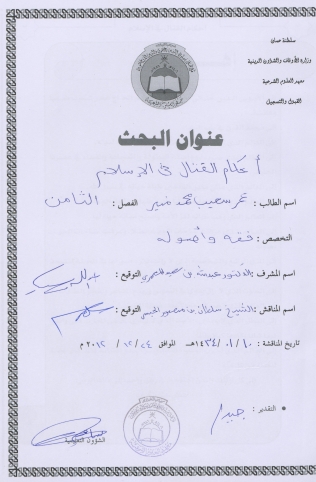 سلطنة عمان
وزارة الأوقاف والشؤون الدينية
معهد العلوم الشرعية
القبول والتسجيل
عنوان البحث
أحكام القتال في الإسلام
اسم الطالب : عمر سعيد محمد منير الفصل : الثامن
التخصص : فقه وأصوله
اسم المشرف : الدكتور عبدالله بن سعيد المعمري التوقيع :
اسم المناقش : الشيخ سلطان بن منصور التوقيع :
تاريخ المناقشة : ١٠ / ٠١ / ١٤٣٤هـ الموافق ٢٤ / ١٢ / ٢٠١٢ م
• التقدير : جيد
الشؤون التعليمية